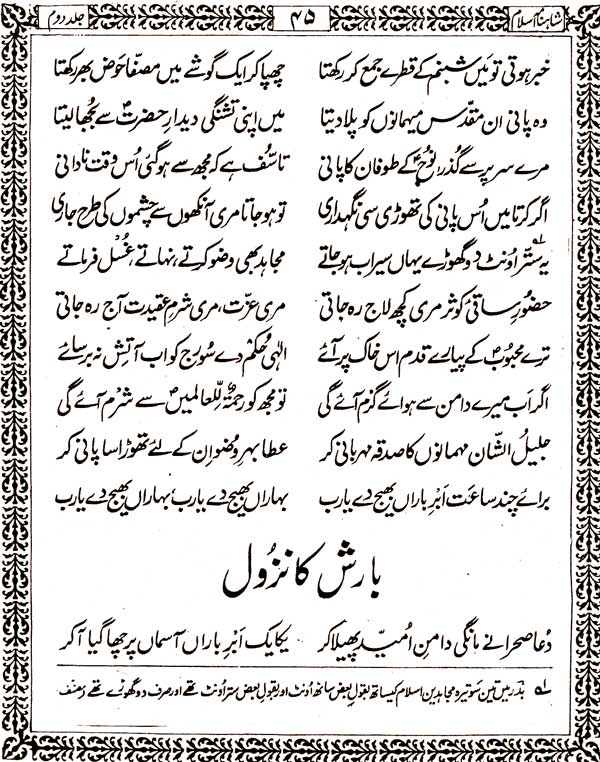 شاہنامہ اسلام ۴۵ جلد دوم
خبر ہوتی تو میں شبنم کے قطرے جمع کر رکھتا چھپا کر ایک گوشے میں مصفّا حوض بھر رکھتا
وہ پانی ان مقدس میہمانوں کو پلا دیتا میں اپنی تشنگی دیدارِ حضرتؐ سے بجھا لیتا
مرے سر پر سے گذر نوحؑ کے طوفان کا پانی تاسّف ہے کہ مجھ سے ہو گئی اُس وقت نادانی
اگر کرتا میں اُس پانی کی تھوڑی سی نگہداری تو ہو جاتا مری آنکھوں سے چشموں کی طرح جاری
یہ ستّر اُونٹ دو گھوڑے یہاں سیراب ہو جاتے ۱؎ مجاہد بھی وضو کرتے، نہاتے، غُسل فرماتے
حضورِ ساقیٔ کوثر مری کچھ لاج رہ جاتی مری عزّت، مری شرمِ عقیدت آج رہ جاتی
ترے محبوبؐ کے پیارے قدم اس خاک پر آئے الٰہی حُکم دے سُورج کو اب آتش نہ برسائے
اگر اَب میرے دامن سے ہوائے گرم آئے گی تو مجھ کو رحمۃٌ لّلعالمیںؐ سے شرم آئے گی
جلیلُ الشّان مہمانوں کا صدقہ مہربانی کر عطا بہرِ وضو ان کے لئے تھوڑا سا پانی کر
برائے چند ساعت اَبرِ باراں بھیج دے یارب بہاراں بھیج دے یارب بہاراں بھیج دے یارب
بارش کا نزُول
دُعا صحرا نے مانگی دامنِ اُمّید پھیلا کر یکایک اَبرِ باراں آسماں پر چھا گیا آ کر
۱؎ بدر میں تین سو تیرہ مجاہدین اسلام کیساتھ بقولِ بعض ساٹھ اُونٹ اور بقولِ بعض ستر اُونٹ تھے اور صرف دو گھوڑے تھے (مصنف